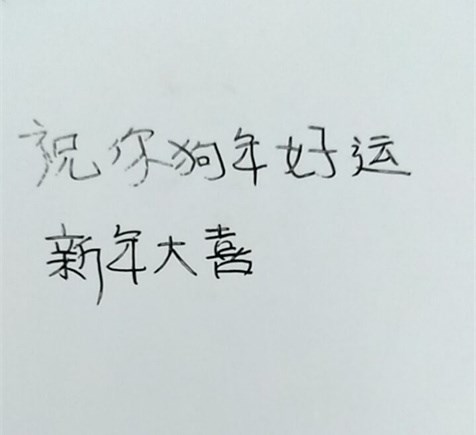 祝你狗年好运
新年大喜